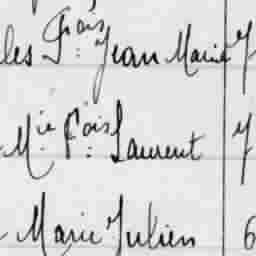 les F.çois Jean Marie 7
Mie F.çois Laurent 7
Marie Julien 6